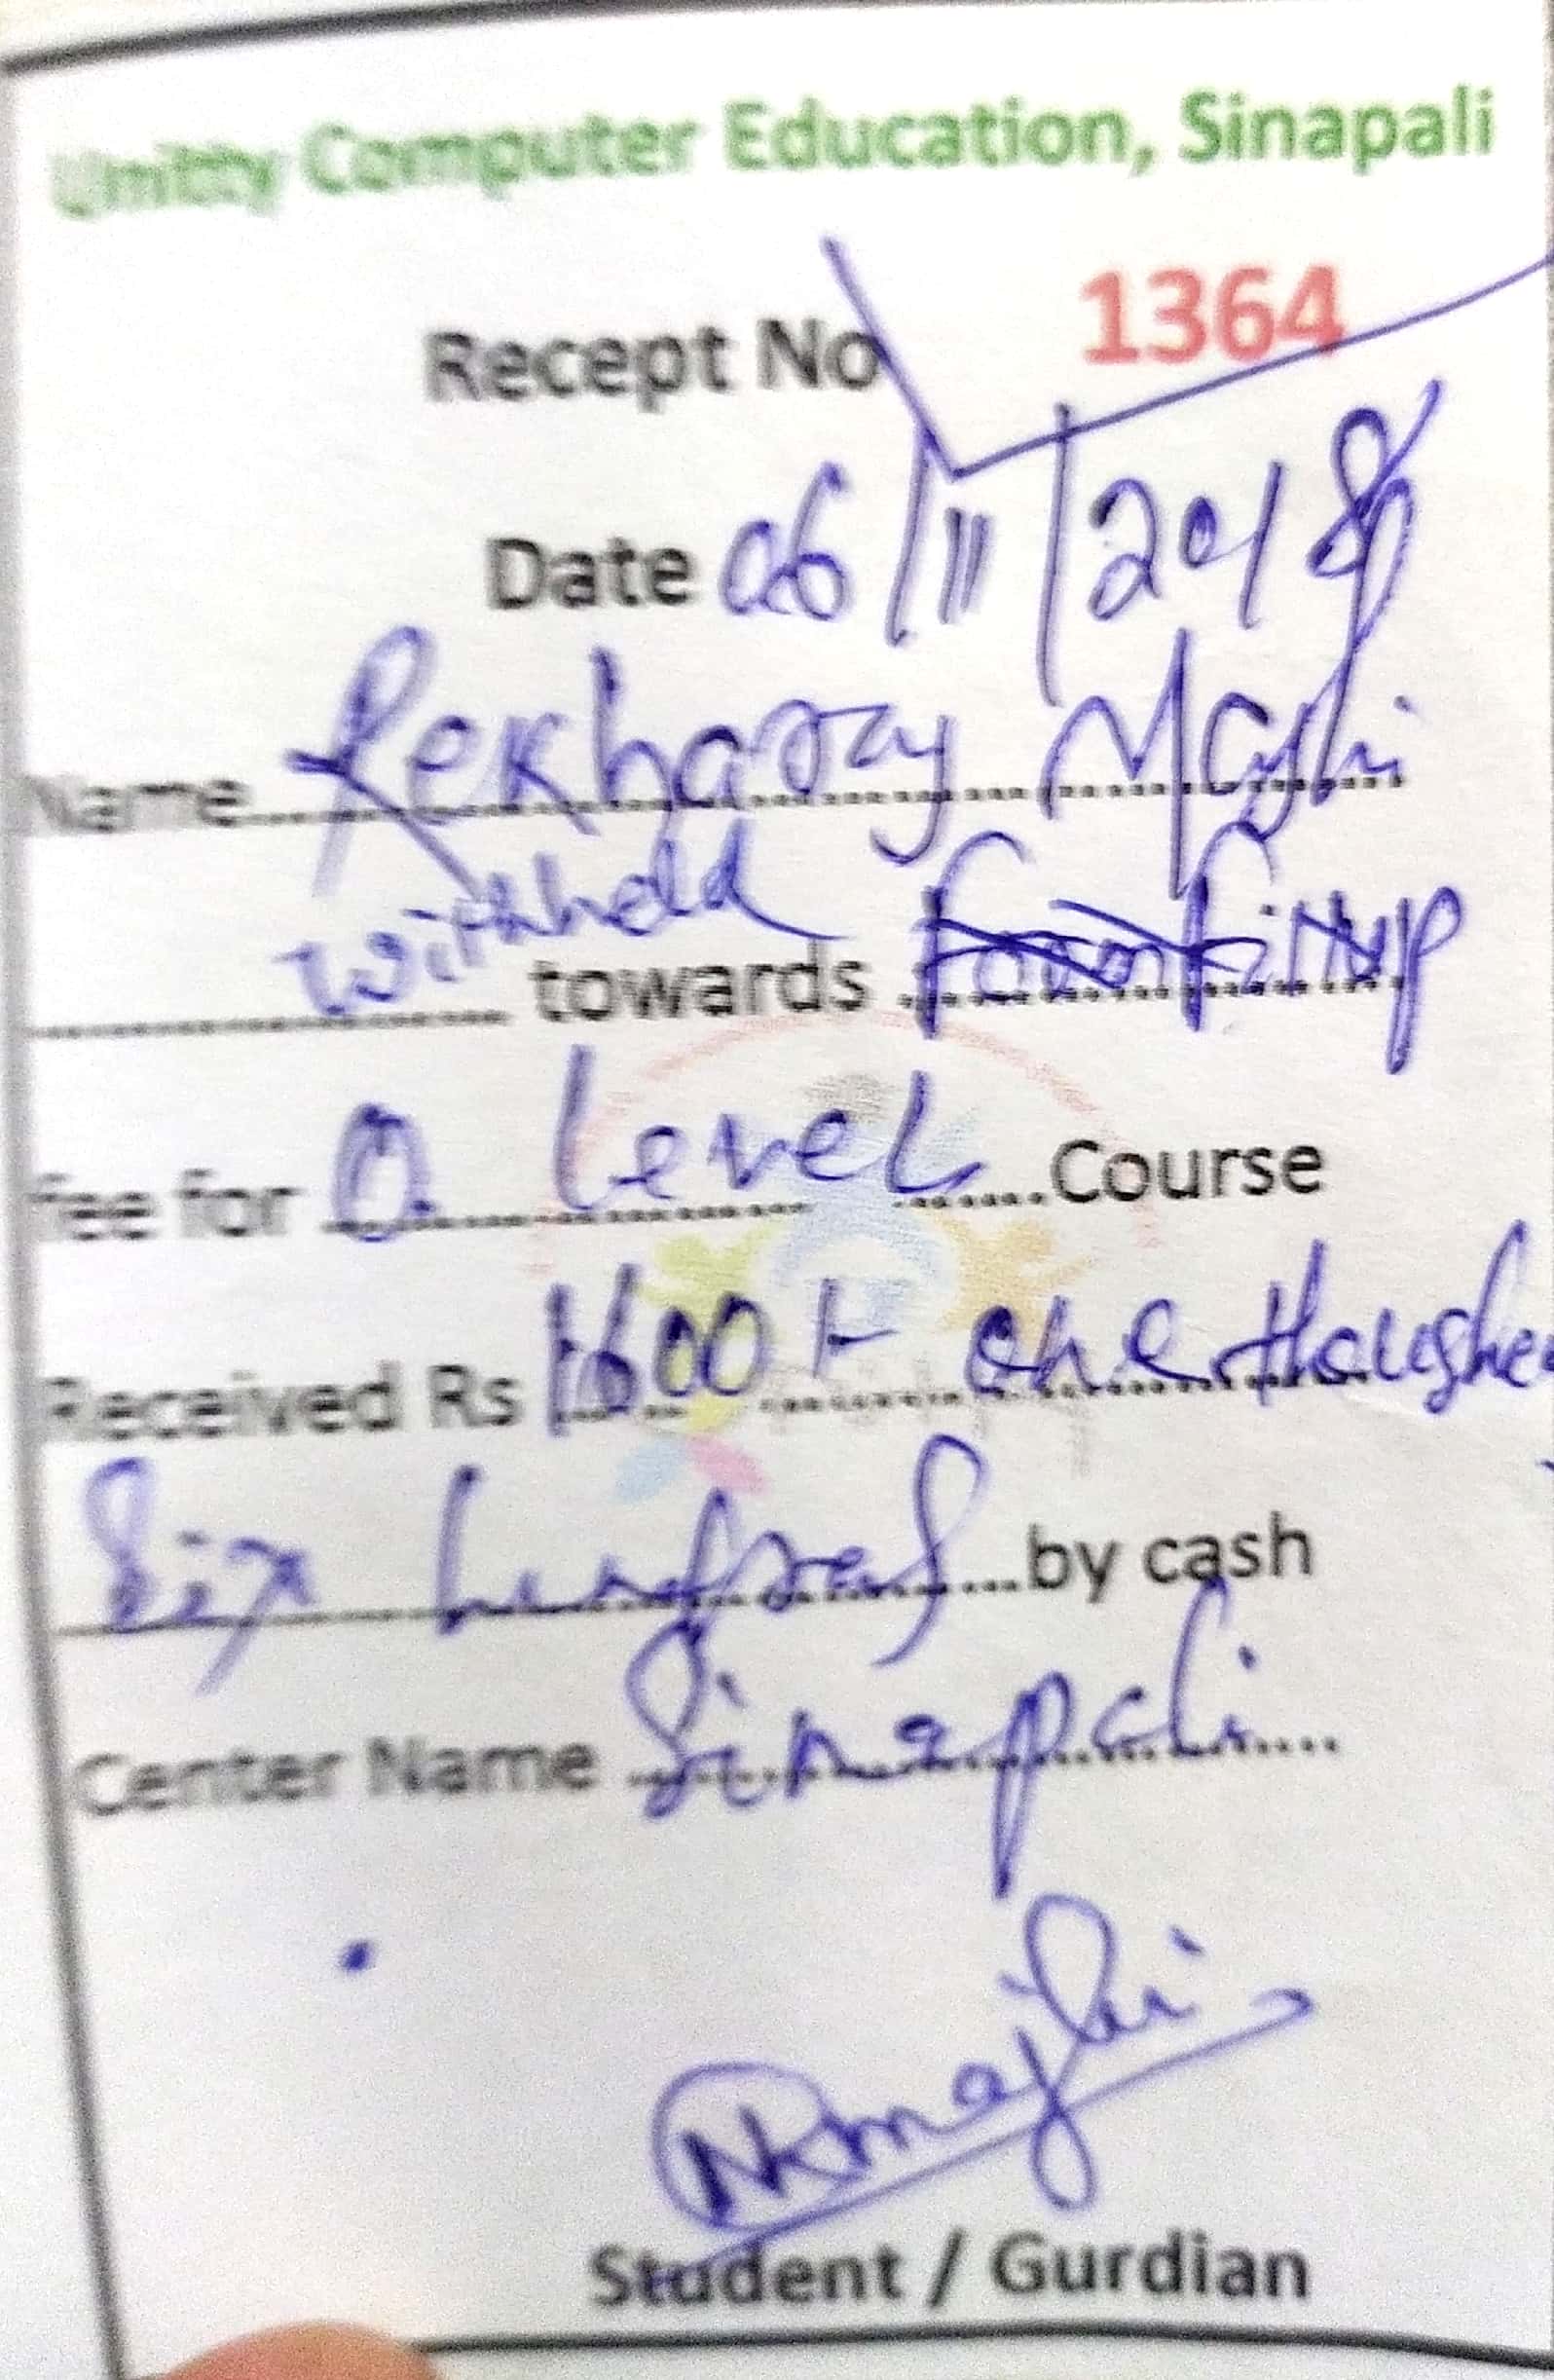 Umitty Computer Education, Sinapali
Recept No 1364
Date 06/11/2018
Name Rekharay Majhi
withheld towards formfillup
fee for O. Level Course
Received Rs 1600/- one
Six by cash
Center Name Sinapali
NKmajhi
Student / Gurdian